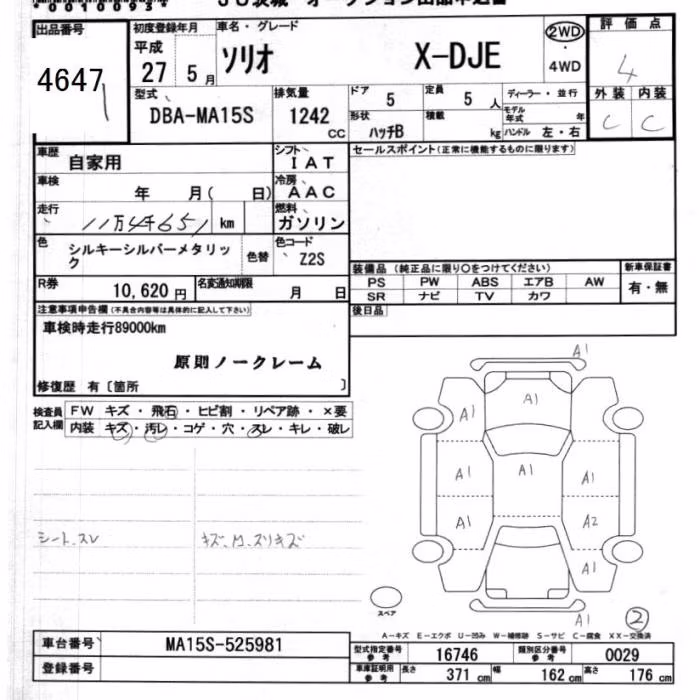 00100954
JU茨城 オークション出品申込書
出品番号 4647
初度登録年月 平成 27 5 月
車名・グレード ソリオ X-DJE
2WD・4WD
評価点 4
型式 DBA-MA15S
排気量 1242 CC
ドア 5
定員 5 人
ディーラー・並行
モデル年式 年
形状 ハッチB
積載 kg
ハンドル 左・右
外装 内装
C C
車歴 自家用
シフト IAT
セールスポイント(正常に機能するものに限ります)
車検 年 月( 日)
冷房 AAC
走行 11万4千651 km
燃料 ガソリン
色 シルキーシルバーメタリック
色替
色コード Z2S
装備品 (純正品に限り〇をつけてください)
新車保証書
PS PW ABS エアB AW
有・無
SR ナビ TV カワ
R券 10,620 円
名変通知期限 月 日
後日品
注意事項申告欄(不具合内容等は具体的に記入して下さい)
車検時走行89000km
原則ノークレーム
修復歴 有〔箇所 〕
検査員記入欄
FW キズ・飛石・ヒビ割・リペア跡・×要
内装 キズ・汚レ・コゲ・穴・スレ・キレ・破レ
シート.スレ
キズ.M.スリキズ
A1
A1
A1 A1
A1 A1 A1
A1 A2
A1
A1
スペア
2
A-キズ E-エクボ U-凹み W-補修跡 S-サビ C-腐食 XX-交換済
車台番号 MA15S-525981
型式指定番号 参考 16746
類別区分番号 参考 0029
登録番号
車庫証明用 参考 長さ 371 cm 幅 162 cm 高さ 176 cm